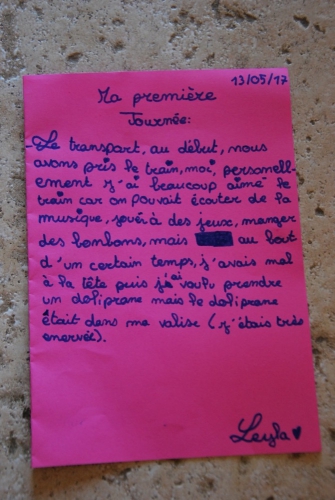 13/05/17
Ma première
Journée:
-Le transport, au début, nous
avons pris le train, moi, personell-
ement j'ai beaucoup aimé le
train car on pouvait écouter de la
musique, jouer à des jeux, manger
des bonbons, mais au bout
d'un certain temps, j'avais mal
à la tête puis j'ai voulu prendre
un doliprane mais le doliprane
était dans ma valise (j'étais très
enervée).
Leyla ♥